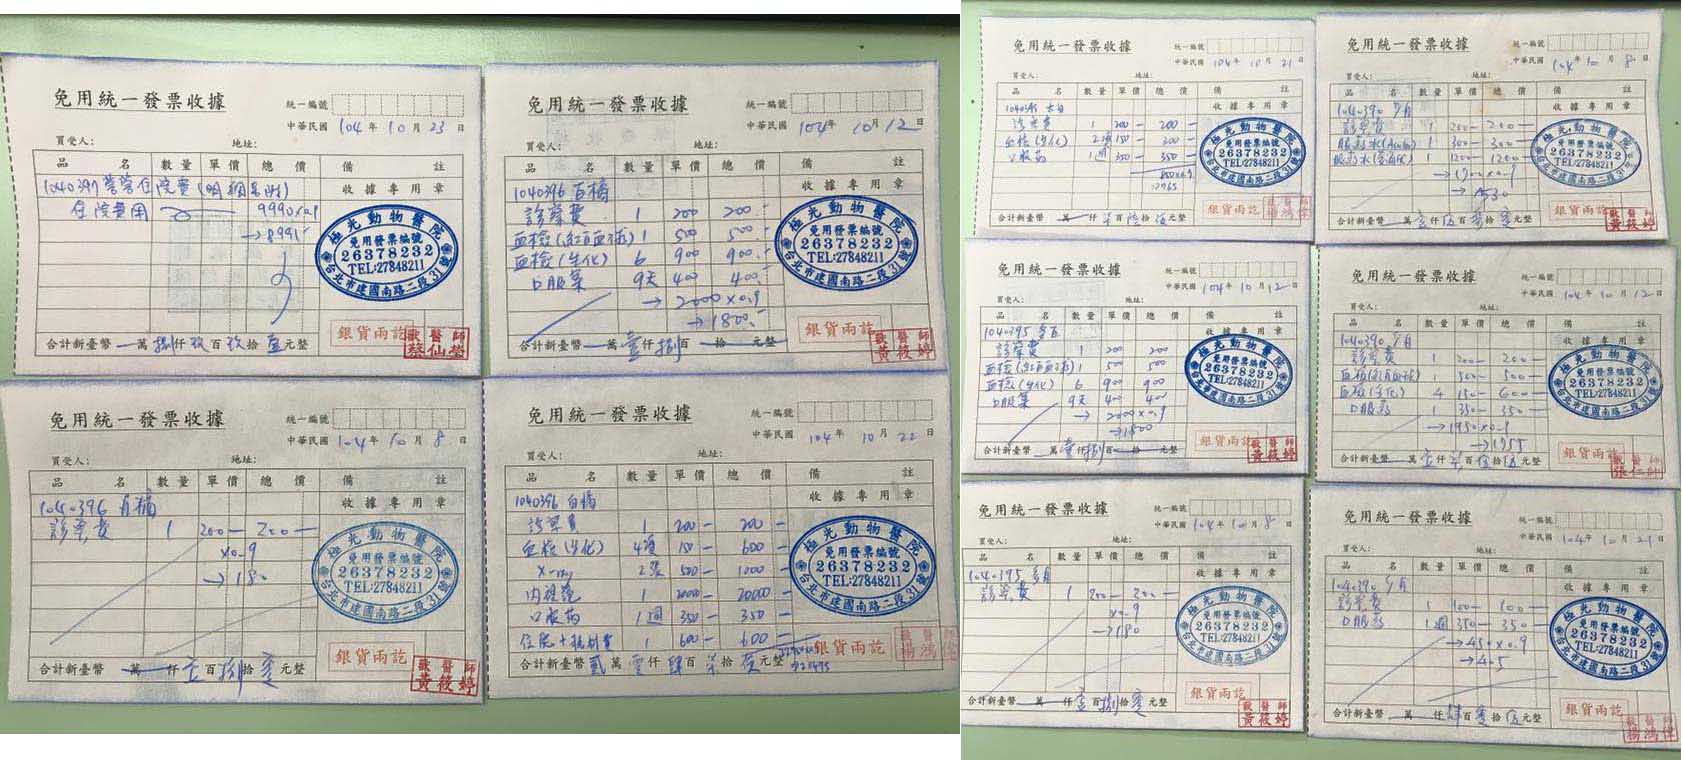 免用統一發票收據
統一編號
中華民國 104年 10月 23日
買受人: 地址:
品 名 數量 單價 總 價 備 註
1040397 住院費(明細呈附) 收據專用章
住院費用 9990×0.9
→8991
極光動物醫院
免用發票編號
26378232
TEL:27848211
台北市建國南路二段31號
銀貨兩訖
獸醫師
蔡仙瑩
合計新臺幣 萬捌仟玖百玖拾壹元整
免用統一發票收據
統一編號
中華民國 104年 10月 12日
買受人: 地址:
品 名 數量 單價 總 價 備 註
1040396 百橘 收據專用章
診察費 1 200 200.-
血檢(紅白血球) 1 500 500.-
血檢(生化) 6 900 900.-
口服藥 9天 400 400.-
→2000×0.9
→1800.-
極光動物醫院
免用發票編號
26378232
TEL:27848211
台北市建國南路二段31號
銀貨兩訖
獸醫師
黃筱婷
合計新臺幣 萬壹仟捌百 拾 元整
免用統一發票收據
統一編號
中華民國 104年 10月 8日
買受人: 地址:
品 名 數量 單價 總 價 備 註
1040396 收據專用章
診察費 1 200- 200-
×0.9
→180
極光動物醫院
免用發票編號
26378232
TEL:27848211
台北市建國南路二段31號
銀貨兩訖
獸醫師
黃筱婷
合計新臺幣 萬 仟壹百捌拾零元整
免用統一發票收據
統一編號
中華民國 104年 10月 22日
買受人: 地址:
品 名 數量 單價 總 價 備 註
1040396 白橘 收據專用章
診察費 1 200- 200-
血檢(生化) 4項 150- 600-
X-ray 2張 500- 1000-
1 20000- 20000-
口服葯 1週 350- 350-
住院+耗材費 1 600- 600-
極光動物醫院
免用發票編號
26378232
TEL:27848211
台北市建國南路二段31號
銀貨兩訖
獸醫師
楊鴻偉
合計新臺幣貳萬壹仟肆百柒拾伍元整
免用統一發票收據
統一編號
中華民國 104年 10月 21日
買受人: 地址:
品 名 數量 單價 總 價 備 註
1040395 收據專用章
診察費 1 200- 200-
血檢(生化) 2項 150- 300-
口服葯 1週 350- 350-
850×0.9
=765
極光動物醫院
免用發票編號
26378232
TEL:27848211
台北市建國南路二段31號
銀貨兩訖
獸醫師
楊鴻偉
合計新臺幣 萬 仟柒百陸拾伍元整
免用統一發票收據
統一編號
中華民國 104年 10月 8日
買受人: 地址:
品 名 數量 單價 總 價 備 註
1040390 收據專用章
診察費 1 200- 200-
1 300- 300-
1 1200- 1200-
→1700×0.9
→1530
極光動物醫院
免用發票編號
26378232
TEL:27848211
台北市建國南路二段31號
銀貨兩訖
獸醫師
黃筱婷
合計新臺幣 萬壹仟伍百參拾零元整
免用統一發票收據
統一編號
中華民國 104年 10月 12日
買受人: 地址:
品 名 數量 單價 總 價 備 註
1040395 收據專用章
診察費 1 200 200
血檢(紅白血球) 1 500 500
血檢(生化) 6 900 900
口服藥 9天 400 400
→2000×0.9
→1800
極光動物醫院
免用發票編號
26378232
TEL:27848211
台北市建國南路二段31號
銀貨兩訖
獸醫師
黃筱婷
合計新臺幣 萬壹仟捌百 拾 元整
免用統一發票收據
統一編號
中華民國 104年 10月 12日
買受人: 地址:
品 名 數量 單價 總 價 備 註
1040390 收據專用章
診察費 1 200- 200-
血檢(紅白血球) 1 500- 500-
血檢(生化) 4 150- 600-
口服葯 1 350- 350-
→1950×0.9
→1755
極光動物醫院
免用發票編號
26378232
TEL:27848211
台北市建國南路二段31號
銀貨兩訖
獸醫師
合計新臺幣 萬壹仟柒百伍拾伍元整
免用統一發票收據
統一編號
中華民國 104年 10月 8日
買受人: 地址:
品 名 數量 單價 總 價 備 註
1040395 收據專用章
診察費 1 200- 200-
×0.9
→180
極光動物醫院
免用發票編號
26378232
TEL:27848211
台北市建國南路二段31號
銀貨兩訖
獸醫師
黃筱婷
合計新臺幣 萬 仟壹百捌拾零元整
免用統一發票收據
統一編號
中華民國 104年 10月 21日
買受人: 地址:
品 名 數量 單價 總 價 備 註
1040390 收據專用章
診察費 1 100- 100-
口服葯 1週 350- 350-
→450×0.9
→405
極光動物醫院
免用發票編號
26378232
TEL:27848211
台北市建國南路二段31號
銀貨兩訖
獸醫師
楊鴻偉
合計新臺幣 萬 仟肆百零拾伍元整